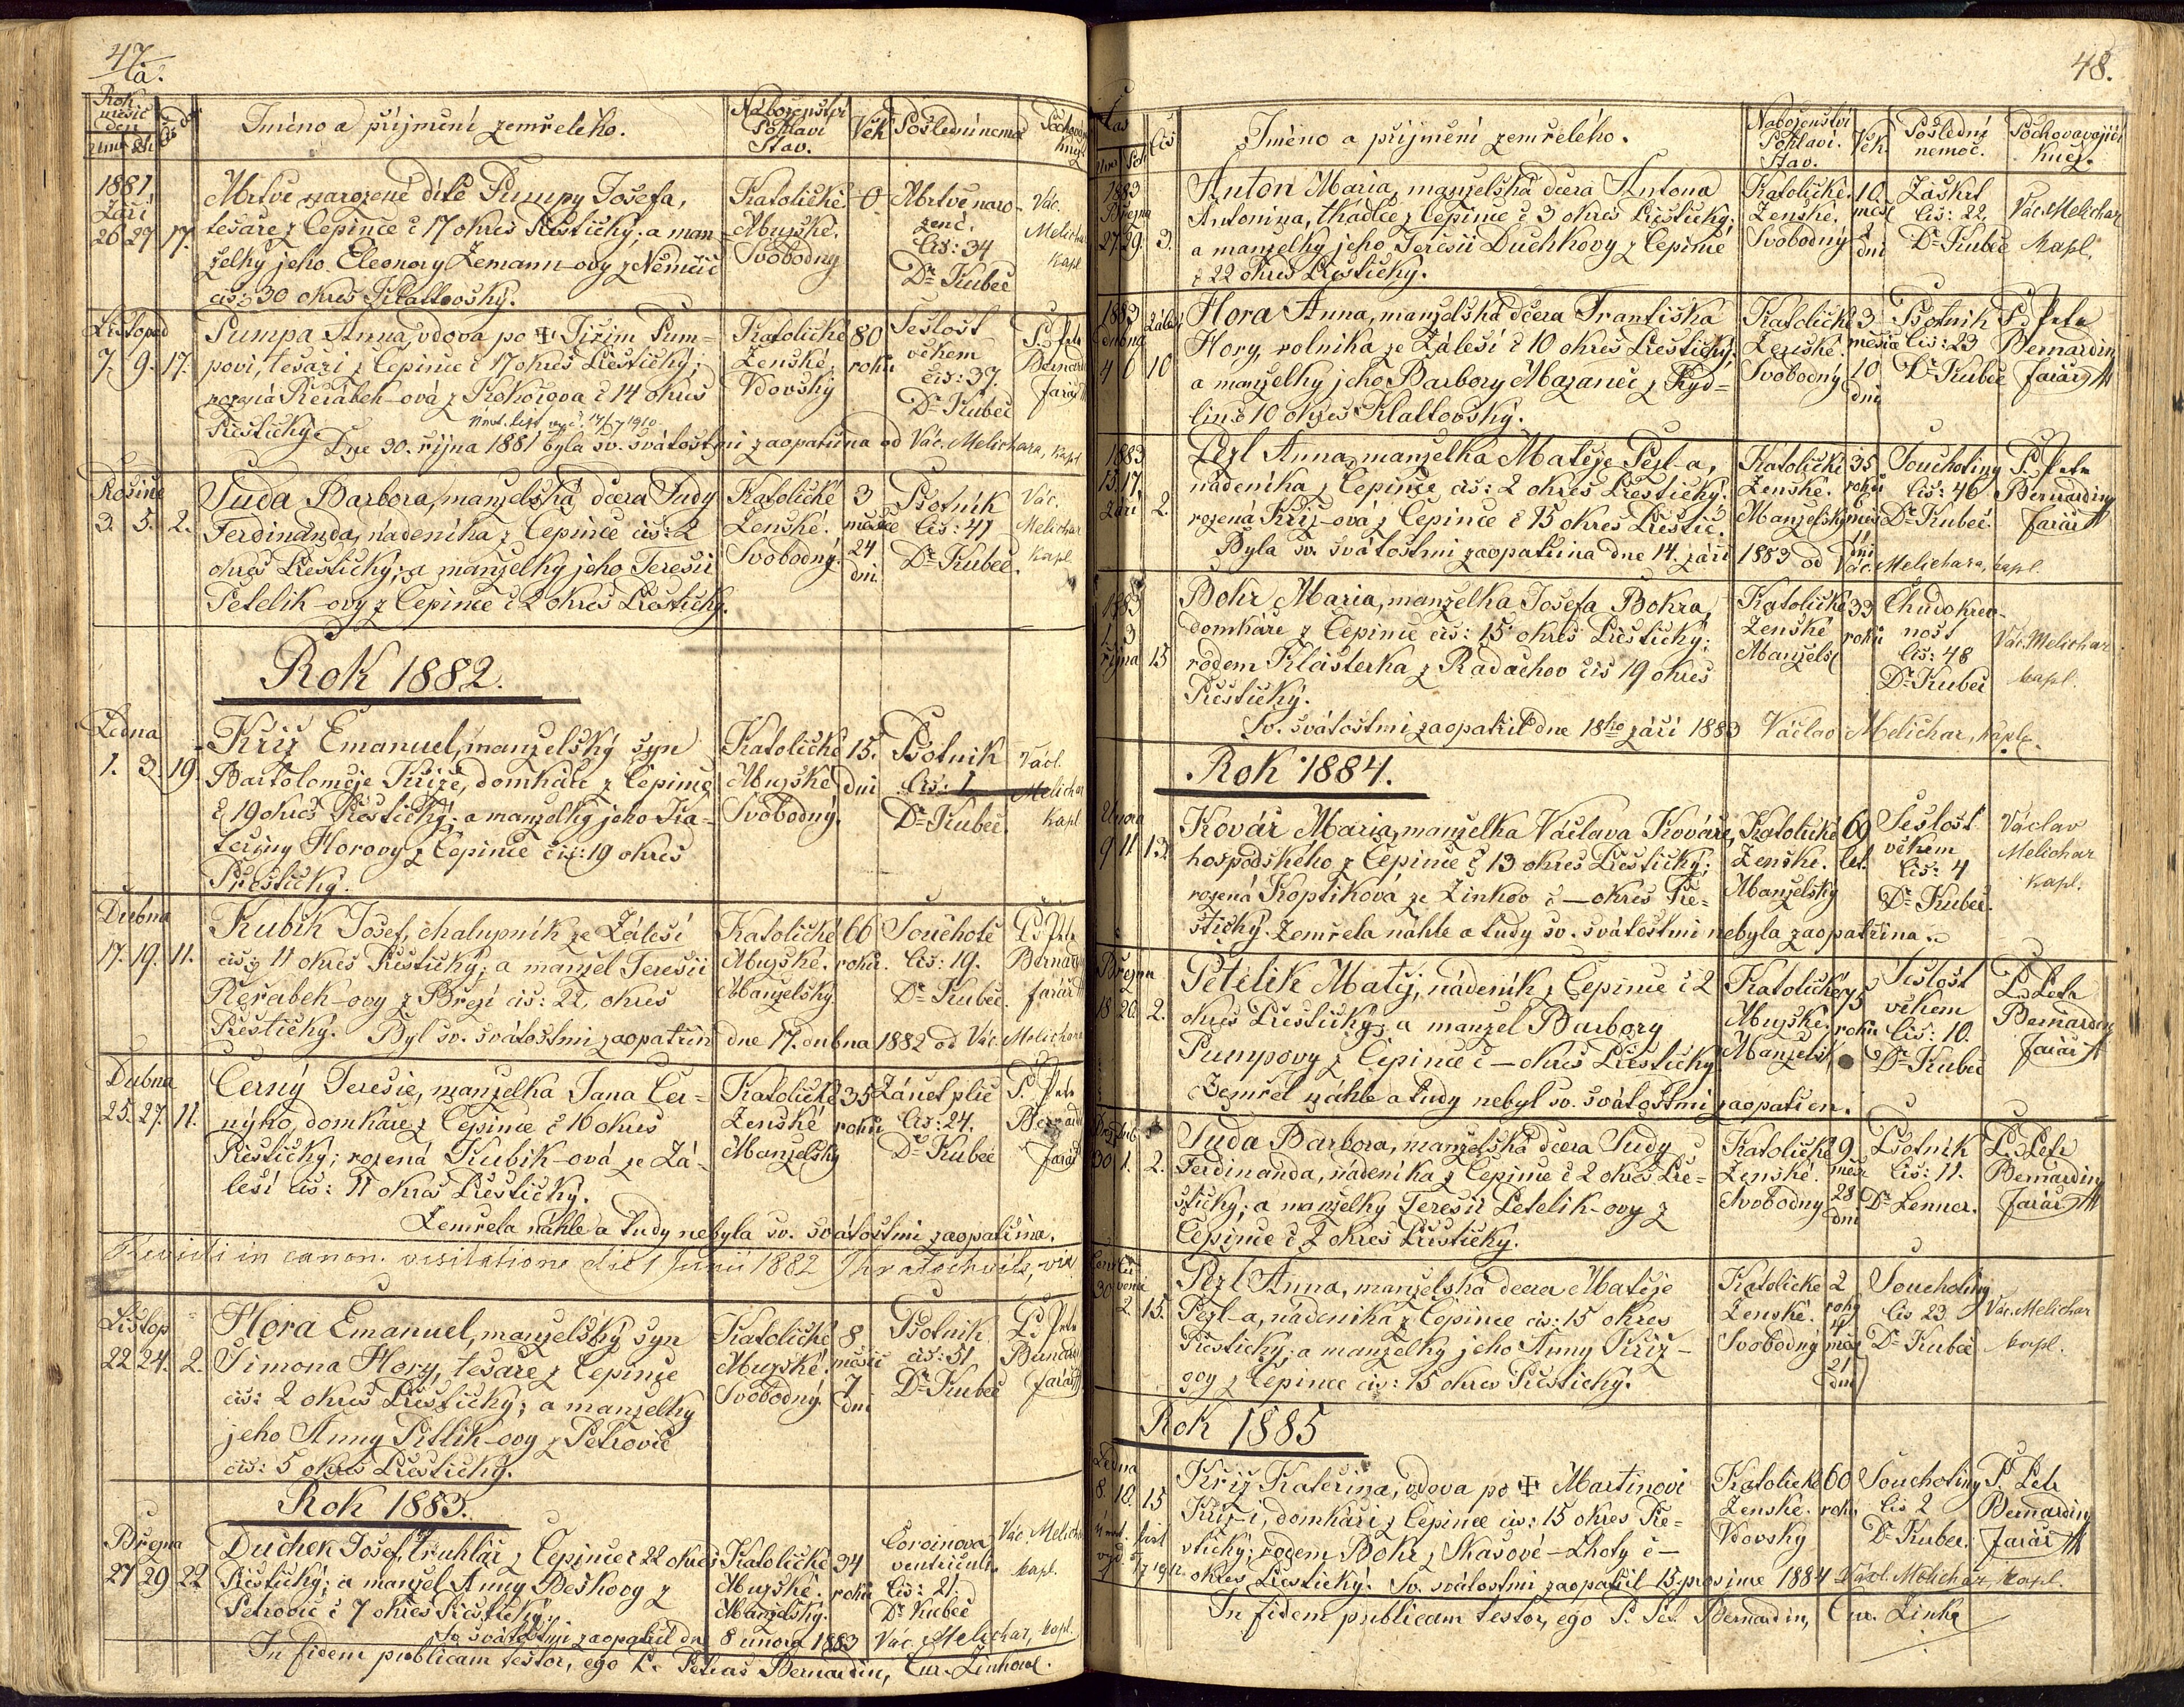 47.
a.
Rok měsíc den
Čís. dom.
Jméno a příjmení zemřelého.
Náboženství Pohlaví Stav.
Věk
Poslední nemoc
1881.
Září
26 27 17.
Mrtvě narozené dítě Pumpy Josefa,
tesaře z Čepince č 17 okres Přestický; a man-
želky jeho Eleonory Zemann-ovy z Němčic
čís: 30 okres Klattovský.
Katolické
Mužské.
Svobodný
0
Mrtvě naro-
zené.
Čís: 34
Dr Kubeč
Vác.
Melichar
kapl
Listopad
7. 9. 17.
Pumpa Anna, vdova po ✠ Jiřím Pum-
povi, tesaři z Čepince č 17 okres Přestický;
rozená Řeřábek-ová z Kokořova č 14 okres
Přestický.
Úmrt. list vyd. 14/7 1910
Dne 30. října 1881 byla sv. svátostmi zaopatřena od Vác. Melichara, kapl.
Katolické
Ženské,
Vdovský
80
roků
Sešlost
věkem
čís: 37.
Dr Kubeč
P. Petr
Bernardin
farář
Prosince
3. 5. 2.
Suda Barbora, manželská dcera Sudy
Ferdinanda, nádeníka z Čepince čís: 2
okres Přestický; a manželky jeho Teresii
Petelik-ovy z Čepince č 2 okres Přestický.
Katolické
Ženské.
Svobodný.
3
měsíce
24
dní
Psotník
Čís: 41
Dr Kubeč.
Vác.
Melichar
kapl.
Rok 1882.
Ledna
1. 3. 19.
Kříž Emanuel, manželský syn
Bartoloměje Kříže, domkáře z Čepince
č 19 okres Přestický; a manželky jeho Ka-
teřiny Horovy z Čepince čís: 19 okres
Přestický.
Katolické
Mužské
Svobodný.
15.
dní
Psotník
Čís: 1
Dr Kubeč.
Václ.
Melichar
kapl
Dubna
17. 19. 11.
Kubík Josef, chalupník ze Zálesí
čís: 11 okres Přestický; a manžel Teresii
Řeřabek-ovy z Březí čís: 22, okres
Přestický. Byl sv. svátostmi zaopatřen dne 17. dubna 1882 od Vác. Melichara
Katolické
Mužské.
Manželský
66
roků.
Souchotě
Čís: 19.
Dr Kubeč.
P. Petr
Bernardin
farář
Dubna
25. 27. 11.
Černý Teresie, manželka Jana Čer-
nýho, domkáře z Čepince č 10 okres
Přestický; rozená Kubik-ová ze Zá-
lesí čís: 11 okres Přestický.
Zemřela náhle a tudy nebyla sv. svátostmi zaopatřena.
Katolické
Ženské
Manželský
35
roků
Zánět plic
Čís: 24.
Dr Kubeč
P. Petr
Bernardin
farář
Revidi in canon. visitatione die 1 Junii 1882
Listop
22 24. 2.
Hora Emanuel, manželský syn
Simona Hory, tesaře z Čepince
čís: 2 okres Přestický; a manželky
jeho Anny Pitlik-ovy z Petrovic
čís: 5 okres Přestický.
Katolické
Mužské.
Svobodný.
8
měsíc
7
dní
Psotník
čís: 51
Dr Kubeč
P. Petr
Bernardin
farář
Rok 1883.
Března
27 29 22
Duchek Josef, truhlář z Čepince č 22 okres
Přestický; a manžel Anny Beškovy z
Petrovic č 7 okres Přestický.
Sv. svátostmi zaopatřil dne 8 února 1883 Vác. Melichar, kapl.
Katolické
Mužské.
Manželský.
34
roků
ventriculi.
Čís: 21.
Dr Kubeč
Vác. Melichar
kapl.
In fidem publicam testor, ego P. Petrus Bernardin, Cur. Žinkov.
48.
Čas
Čís
Jméno a příjmení zemřelého.
Náboženství Pohlaví. Stav.
Věk.
Poslední nemoc.
Pochovavající kněz.
1883
Března
27. 29. 3.
Anton Maria, manželská dcera Antona
Antonina, tkadlce z Čepince č 3 okres Přestický;
a manželky jeho Teresii Duchkovy z Čepince
č 22 okres Přestický.
Katolické.
Ženské.
Svobodný
10.
měsí
dní
Záškrt
Čís: 22,
Dr Kubeč
Vác. Melichar
kapl.
1883
dubna
4 6 10
Hora Anna, manželská dcera Františka
Hory, rolníka ze Zálesí č 10 okres Přestický;
a manželky jeho Barbory Mazanec z Kyd-
lin č 10 okres Klattovský.
Katolické
Ženské.
Svobodný
3
měsíce
10
dní
Psotník
Čís: 23
Dr Kubeč
P. Petr
Bernardin
farář
1883
15. 17.
září 2.
Pezl Anna, manželka Matěje Pezl-a,
nádeníka z Čepince čís: 2 okres Přestický.
rozená Kříž-ová z Čepince č 15 okres Přestic.
Byla sv. svátostmi zaopatřena dne 14. září 1883 od Vác. Melichara, kapl.
Katolické
Ženské.
Manželský
35
roků
dní
Souchotiny
Čís: 46
Dr Kubeč.
P. Petr
Bernardin
farář
1883
1. 3
října 15
Bohr Maria, manželka Josefa Bohra,
domkáře z Čepince čís: 15 okres Přestický;
rodem Klásterka z Radachov čís 19 okres
Přestický.
Sv. svátostmi zaopatřil dne 18ho září 1883 Václav Melichar, kapl.
Katolické
Ženské
Manžels
33
roků
Chudokrev-
nost
Čís: 48
Dr Kubeč
Vác. Melichar
kapl.
Rok 1884.
Února
9 11 13.
Kovář Maria, manželka Václava Kováře,
hospodského z Čepince č 13 okres Přestický;
rozená Koptiková ze Žinkov č — okres Pře-
stický. Zemřela náhle a tudy sv. svátostmi nebyla zaopatřena.
Katolické
Ženské.
Manželský
69
let.
Sešlost
věkem
Čís: 4
Dr Kubeč.
Václav
Melichar
kapl.
Března
18 20. 2.
Petelik Matěj, nádeník z Čepince č 2
okres Přestický; a manžel Barbory
Pumpovy z Čepince č — okres Přestický.
Zemřel náhle a tudy nebyl sv. svátostmi zaopatřen.
Katolické
Mužské.
Manžels
75
roků
Sešlost
věkem
Čís: 10.
Dr Kubeč
P. Petr
Bernardin
farář
30 1. 2.
Suda Barbora, manželská dcera Sudy
Ferdinanda, nádeníka z Čepince č 2 okres Pře-
stický; a manželky Teresii Petelik-ovy z
Čepince č 2 okres Přestický.
Katolické
Ženské.
Svobodný
9.
měsí
28
dní
Psotník
Čís: 11.
Dr Lenner.
P. Petr
Bernardin
farář
30 2. 15.
Pezl Anna, manželská dcera Matěje
Pezl-a, nádeníka z Čepince čís: 15 okres
Přestický; a manželky jeho Anny Kříž-
ovy z Čepince čís: 15 okres Přestický.
Katolické
Ženské.
Svobodný
2
roky
4
měs
21
dní
Souchotiny
Čís 23
Dr Kubeč
Vác. Melichar
kapl.
Rok 1885
Ledna
8. 10. 15
Kříž Kateřina, vdova po ✠ Martinovi
Kříž-i, domkáři z Čepince čís: 15 okres Pře-
stický; rodem Bohr z Skašové-Lhoty č —
okres Přestický. Sv. svátostmi zaopatřil 15. prosince 1884 Václ. Melichar, kapl.
Katolické
Ženské.
Vdovský
60
roků
Souchotiny
Čís 2
Dr Kubeč.
P. Petr
Bernardin
farář
Úmrt. list
vyd.
In fidem publicam testor, ego P. Pet. Bernardin, Cur. Žinko